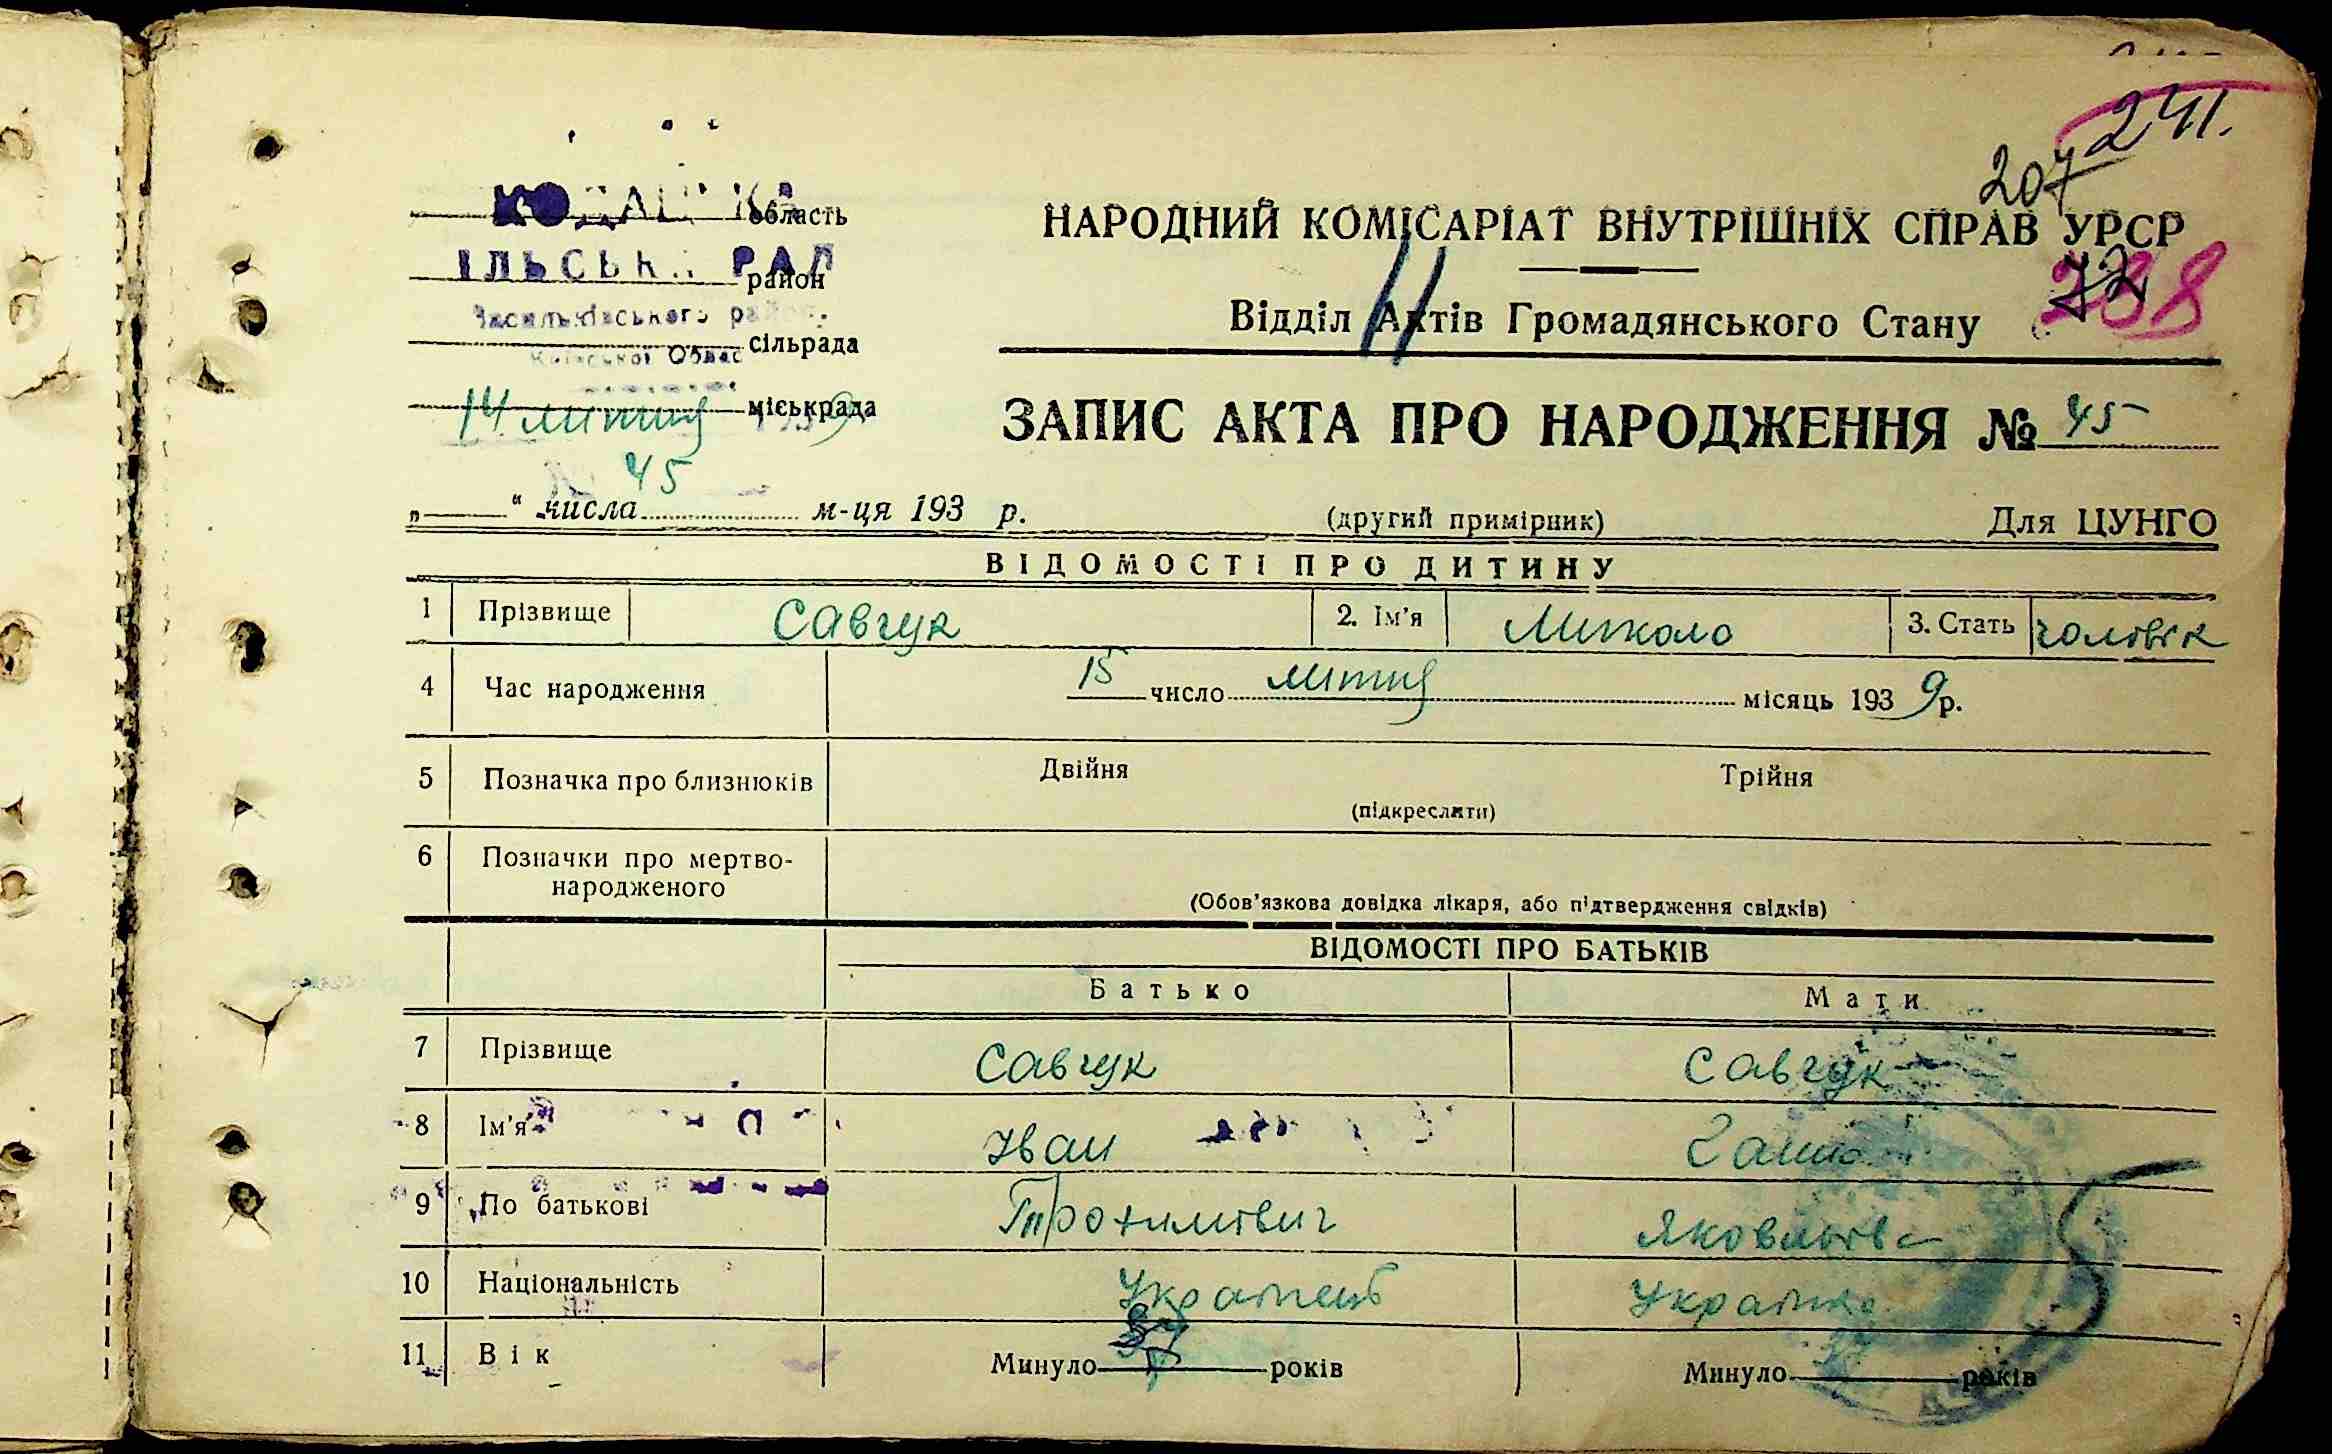 241.
207
НАРОДНИЙ КОМІСАРІАТ ВНУТРІШНІХ СПРАВ УРСР
72
288
Відділ Актів Громадянського Стану
область
район
Васильківського
сільрада
Київської Облас
14 лютий міськрада
45
ЗАПИС АКТА ПРО НАРОДЖЕННЯ № 45
„ “ числа м-ця 193 р.
(другий примірник)
Для ЦУНГО
ВІДОМОСТІ ПРО ДИТИНУ
1 Прізвище Савчук 2. Ім'я Микола 3. Стать чоловік
4 Час народження 15 число лютий місяць 1939 р.
5 Позначка про близнюків Двійня Трійня
(підкреслити)
6 Позначки про мертво-
народженого
(Обов'язкова довідка лікаря, або підтвердження свідків)
ВІДОМОСТІ ПРО БАТЬКІВ
Батько Мати
7 Прізвище Савчук Савчук
8 Ім'я Іван
9 По батькові Трохимович Яковлівна
10 Національність Українець Українка
11 Вік Минуло 37 років Минуло років